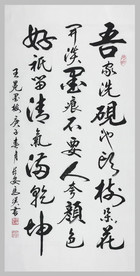 吾家洗硯池頭樹朵朵花
開淡墨痕不要人夸顏色
好祇留清氣滿乾坤
王冕墨梅庚子春月書